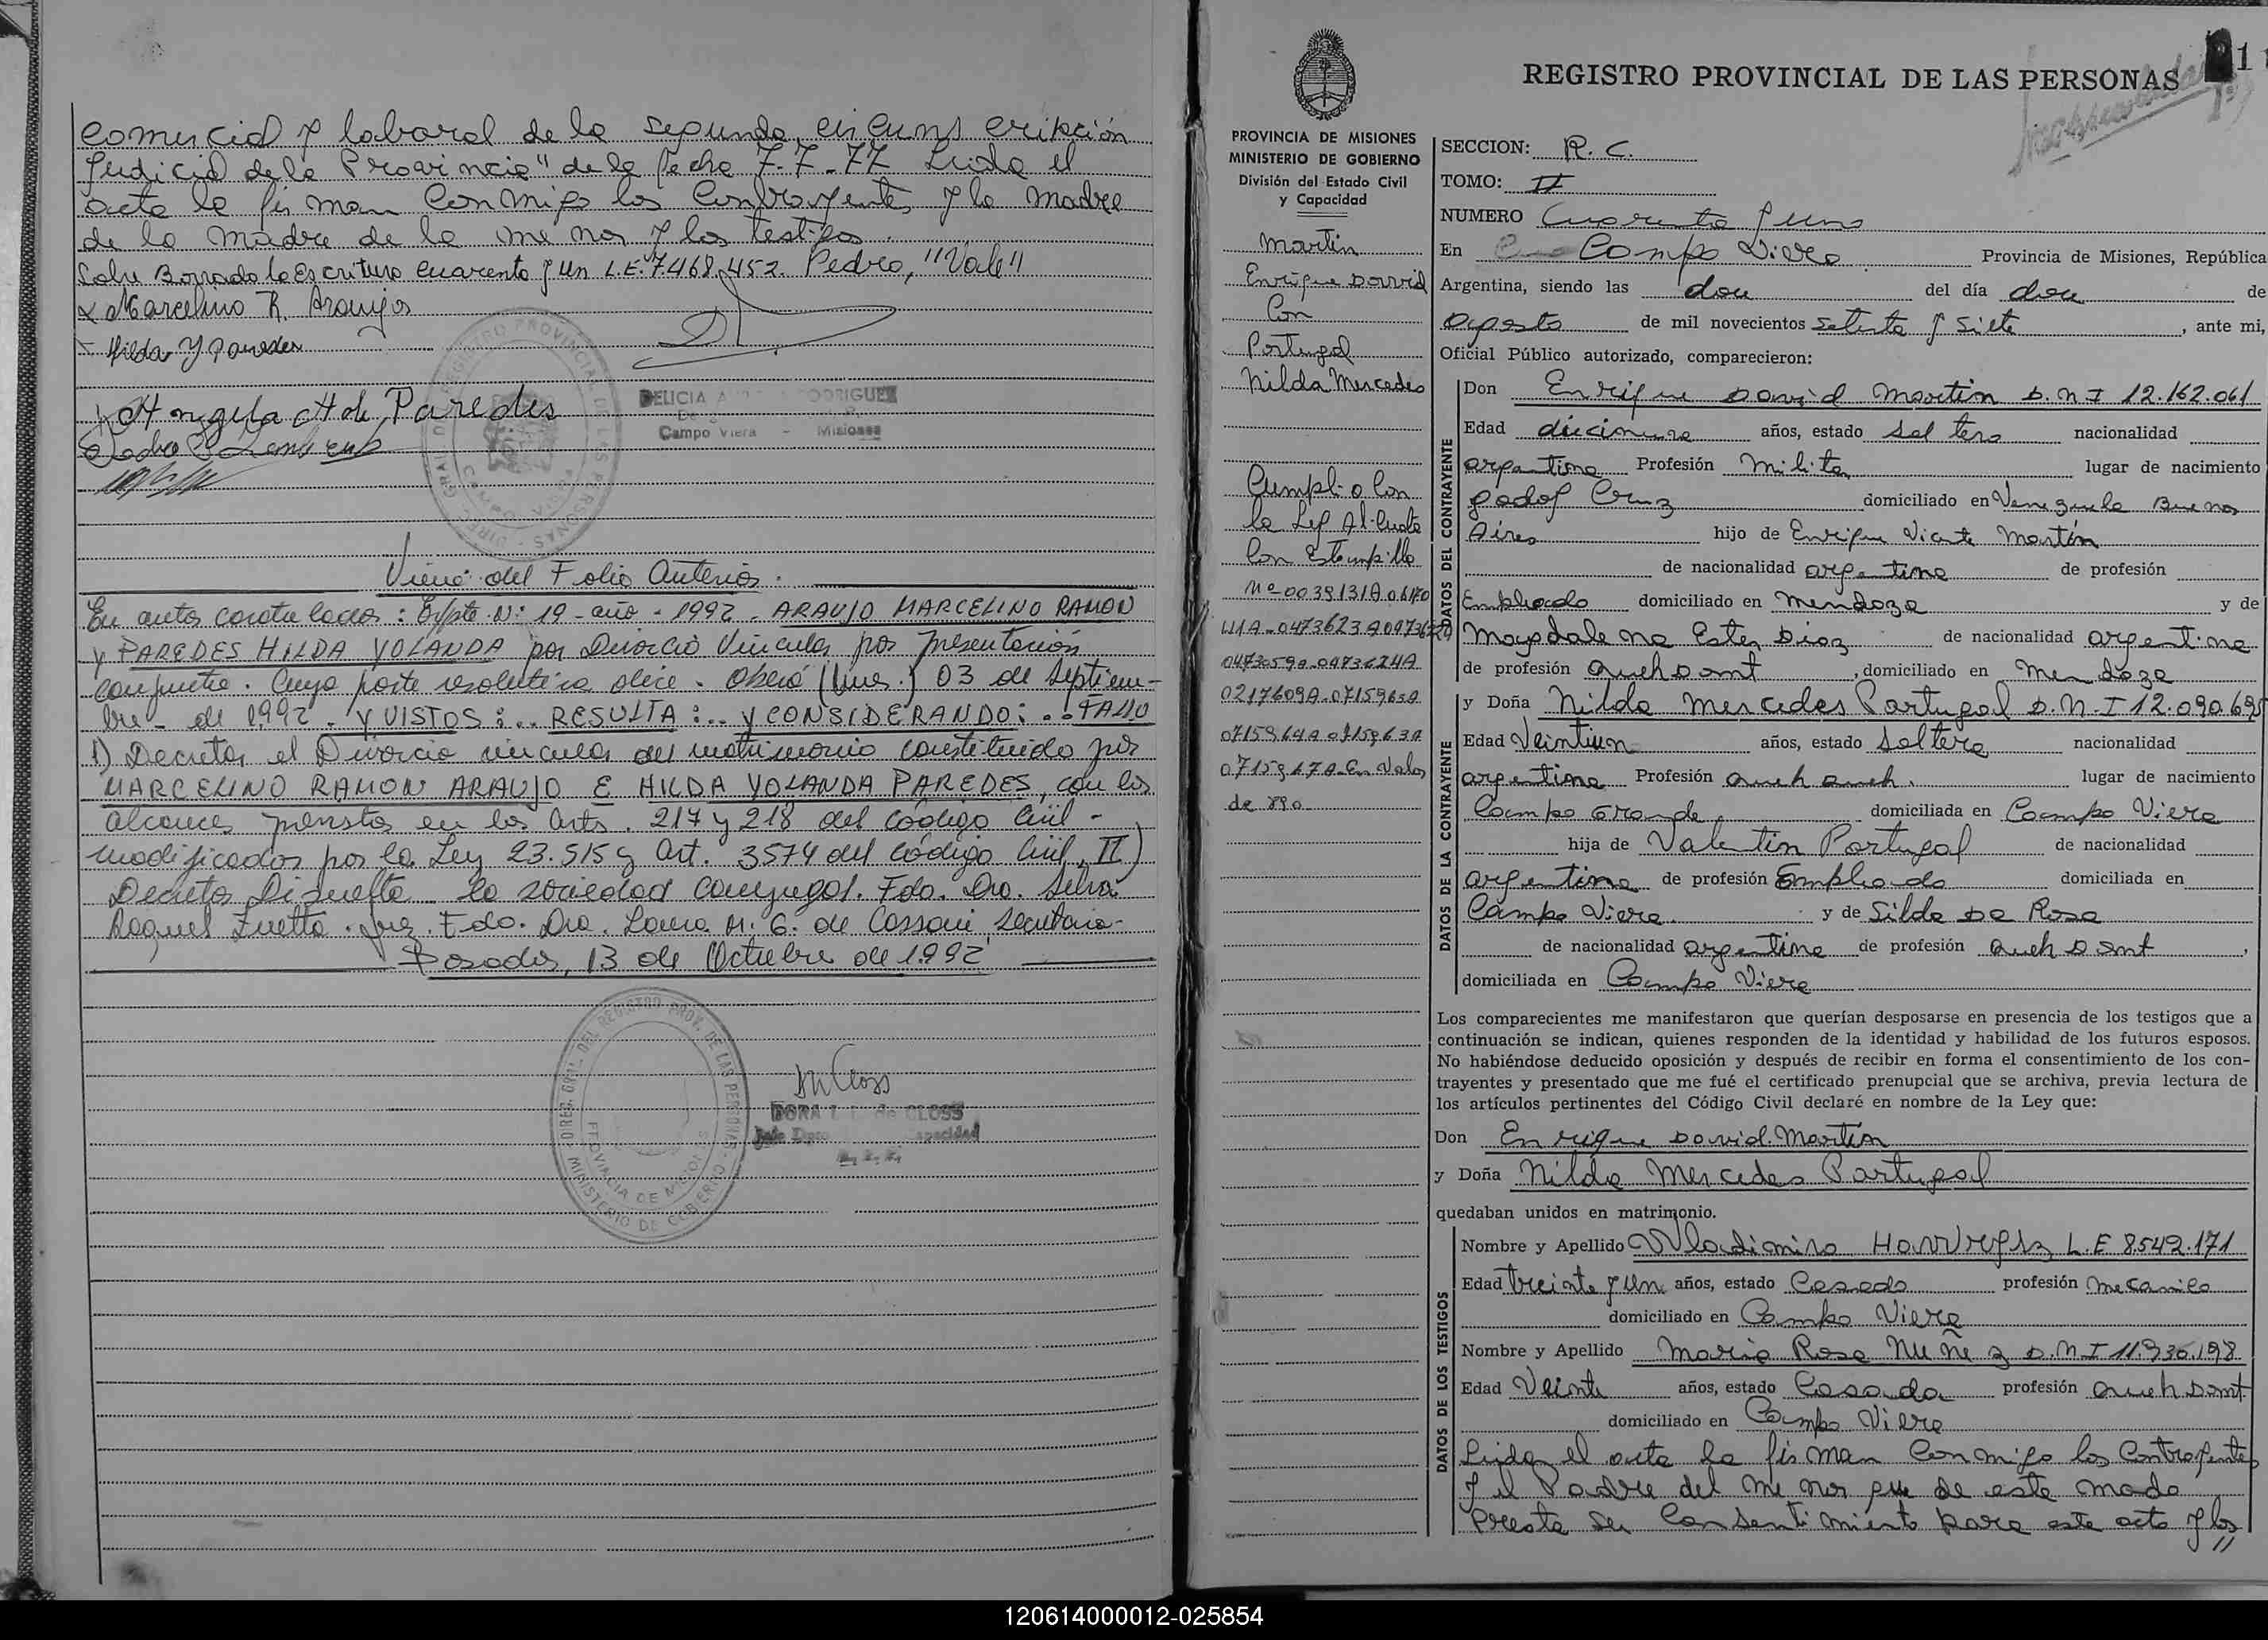 comercial y laboral de la segunda circunscripción
Judicial de la Provincia" de la fecha 7-7-77 Leida el
acta la firman conmigo los Contrayentes y la madre
de la madre de la menor y los testigos.
Sobre Borrado la Escritura cuarenta y un L.E. 7.468.452. Pedro, "Vale"
x Marcelino R. Araujo
x Hilda Y Paredes
Angela A de Paredes
DELICIA RODRIGUEZ
Campo Viera - Misiones
Viene del Folio Anterior.
En autos caratulados: Expte. Nº 19 - año - 1992 - ARAUJO MARCELINO RAMON
Y PAREDES HILDA YOLANDA por Divorcio Vincular por presentación
conjunta. Cuya parte resolutiva dice. Oberá (Mnes.) 03 de Septiem-
bre - de 1992 - Y VISTOS:.. RESULTA:.. Y CONSIDERANDO:.. FALLO
1) Decretar el Divorcio vincular del matrimonio constituido por
MARCELINO RAMON ARAUJO E HILDA YOLANDA PAREDES, con los
alcances previstos en los Arts. 217 y 218 del código Civil -
modificados por la Ley 23.515 y Art. 3574 del código Civil, II)
Decretar Disuelta la sociedad conyugal. Fdo. Dra. Selva
Raquel Zuetta. Juez. Fdo. Dra. Laura M. G. de Cassoni Secretaria-
Posadas, 13 de Octubre de 1992
DIREC. GRAL. DEL REGISTRO PROV. DE LAS PERSONAS
PROVINCIA DE MISIONES
MINISTERIO DE GOBIERNO
DORA L. L. de CLOSS
REGISTRO PROVINCIAL DE LAS PERSONAS
PROVINCIA DE MISIONES
MINISTERIO DE GOBIERNO
División del Estado Civil
y Capacidad
Martin
Enrique David
Con
Portugal
Nilda Mercedes
Cumplio con
la Ley Al-Cuota
Con Estampilla
SECCION: R. C.
TOMO: II
NUMERO Cuarenta y uno
En Campo Viera Provincia de Misiones, República
Argentina, siendo las doce del día doce de
Agosto de mil novecientos setenta y siete, ante mi,
Oficial Público autorizado, comparecieron:
DATOS DEL CONTRAYENTE
Don Enrique David Martin D.N.I 12.162.061
Edad diecinueve años, estado soltero nacionalidad
argentina Profesión Militar lugar de nacimiento
godoy Cruz domiciliado en Venezuela Buenos
Aires hijo de Enrique Vicente Martín
de nacionalidad argentina de profesión
Empleado domiciliado en Mendoza y de
Magdalena Ester Diaz de nacionalidad argentina
de profesión Queh Domt, domiciliado en Mendoza
DATOS DE LA CONTRAYENTE
y Doña Nilda Mercedes Portugal D.N.I 12.090.695
Edad Veintiun años, estado Soltera nacionalidad
argentina Profesión Queh Queh. lugar de nacimiento
Campo Grande domiciliada en Campo Viera
hija de Valentin Portugal de nacionalidad
argentina de profesión Empleado domiciliada en
Campo Viera. y de Silda Da Rosa
de nacionalidad argentina de profesión Queh Domt,
domiciliada en Campo Viera
Los comparecientes me manifestaron que querían desposarse en presencia de los testigos que a
continuación se indican, quienes responden de la identidad y habilidad de los futuros esposos.
No habiéndose deducido oposición y después de recibir en forma el consentimiento de los con-
trayentes y presentado que me fué el certificado prenupcial que se archiva, previa lectura de
los artículos pertinentes del Código Civil declaré en nombre de la Ley que:
Don Enrique David Martin
y Doña Nilda Mercedes Portugal
quedaban unidos en matrimonio.
DATOS DE LOS TESTIGOS
Nombre y Apellido Wladimiro L.E 8.542.171
Edad treinta y un años, estado Casado profesión mecanico
domiciliado en Campo Viera
Nombre y Apellido Maria Rosa Nuñez D.N.I 11.936.198
Edad Veinte años, estado Casada profesión Queh Domt.
domiciliado en Campo Viera
Leida el acta la firman conmigo los Contrayentes
y el Padre del menor que de este modo
Presta su Consentimiento para este acto y los
120614000012-025854